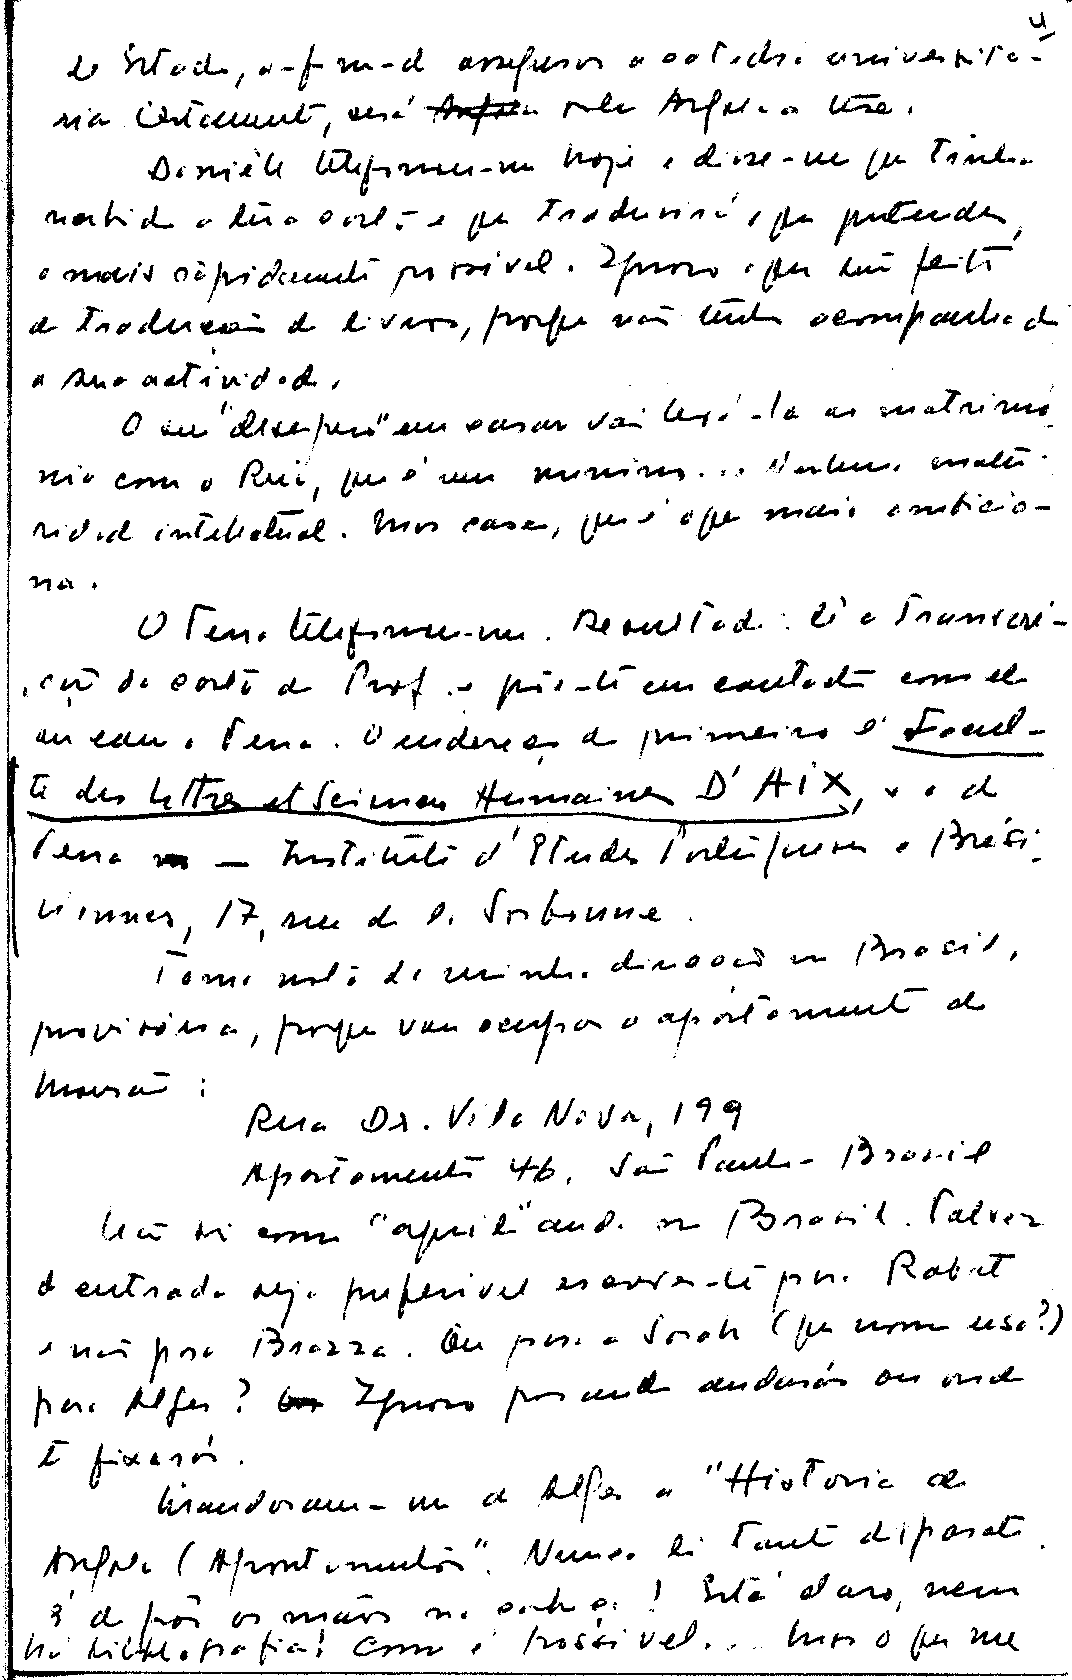 4
de Estado, a fim de assegurar a catedra universitá-
ria. Certamente, será sobre Angola a tese.
Danièle telefonou-me hoje e disse-me que tinha
recebido a tua carta e que traduzirá o que pretendes,
o mais rapidamente possível. Ignoro o que tem feito
de tradução de livros, porque não tenho acompanhado
a sua actividade.
O seu "desespero" em casar vai levá-la ao matrimó-
nio com o Rui, que é um menino... Nenhuma matu-
ridade intelectual. Mas casa, que é o que mais ambicio-
na.
O Pena telefonou-me. Resultado: lê a transcri-
ção da carta do Prof. e põe-te em contacto com ele
ou com o Pena. O endereço do primeiro é Facul-
té des Lettres et Sciences Humaines D'AIX, e o do
Pena — Institute d'Etudes Portugueses e Brési-
liennes, 17, rue de la Sorbonne.
Toma nota da minha direcção no Brasil,
provisória, porque vou ocupar o apartamento do
Mourão:
Rua Dr. Vila Nova, 199
Apartamento 46, São Paulo - Brasil
Não sei como "aquilo" anda no Brasil. Talvez
de entrada seja preferível escrever-te para Rabat
e não para Brazza. Ou para a Sarah (que nome usa?)
para Alger? Ignoro por onde andarás ou onde
te fixarás.
Mandaram-me de Alger a "Historia de
Angola (Apontamentos)". Nunca li tanto disparate.
É de pôr as mãos na cabeça! Está claro, nem
há bibliografia! Como é possível... Mas o que me